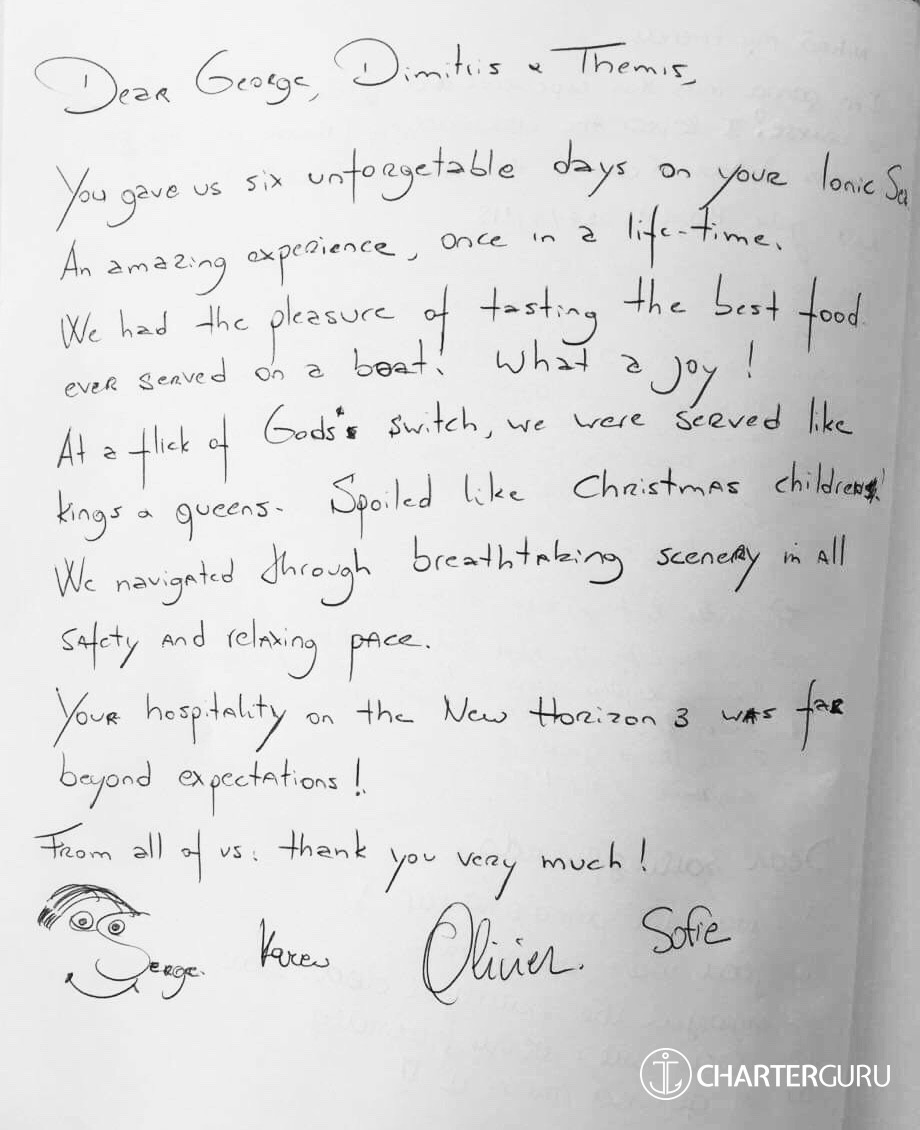 Dear George, Dimitris & Themis,
You gave us six unforgetable days on your Ionic Sea
An amazing experience, once in a life-time.
We had the pleasure of tasting the best food
ever served on a boat! What a joy!
At a flick of Gods' switch, we were served like
kings & queens. Spoiled like Christmas children!
We navigated through breathtaking scenery in all
safety and relaxing pace.
Your hospitality on the New Horizon 3 was far
beyond expectations!
From all of us: thank you very much!
Serge. Karen Olivier. Sofie
CHARTERGURU